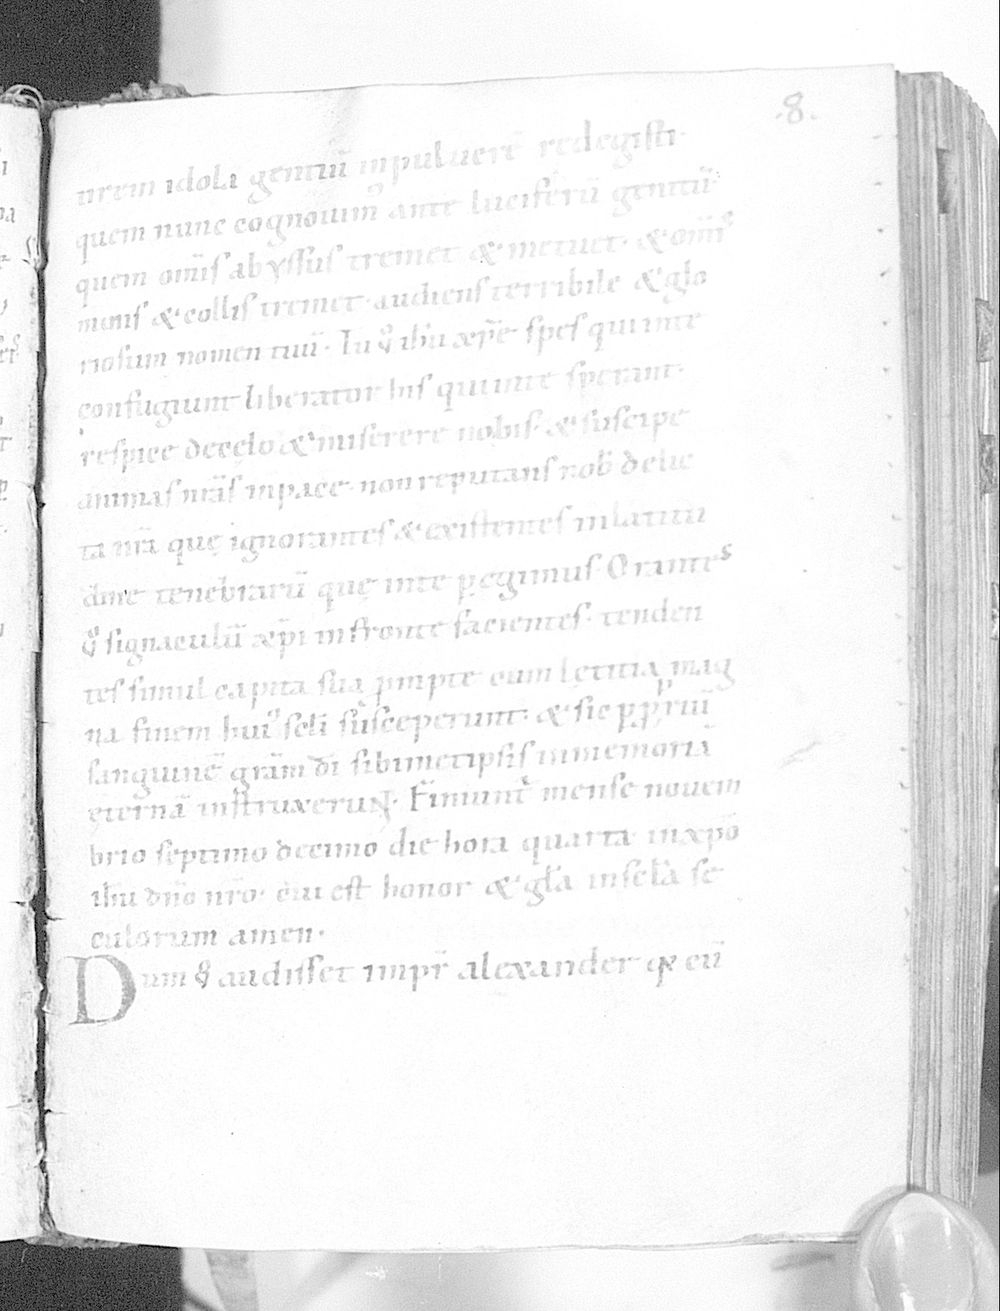 ·8·
urem idola gentiū inpuluerē redegisti·
quem nunc cognouim̄ ante luciferū genitū·
quem om̄is abyssus tremet & metuet· & om̄is
mons & collis tremet· audiens terribile & glo
riosum nomen tuū· ih̄u xp̄e spes qui inte
confugiunt liberator his qui inte sperant·
respice decęlo & miserere nobis· & suscipe
animas nr̄as inpace· non reputans nob̄ delic
ta nr̄a quę ignorantes & existentes
tenebrarū quę inte pegimus· Orantes
signaculū xp̄i infronte facientes· tenden
tes simul capita sua cum lętitia mag
na finem hui᾽ sc̄li susceperunt· & sic ppriū
sanguinē gr̄am dī sibimetipsis inmemoriā
ęternā instruxeruN· mense nouem
brio septimo decimo die hora quarta inxp̄o
ih̄u dn̄o nr̄o· cui est honor & gl̄a insec̄la se
culorum amen·
Dum audisset impr̄ alexander eū